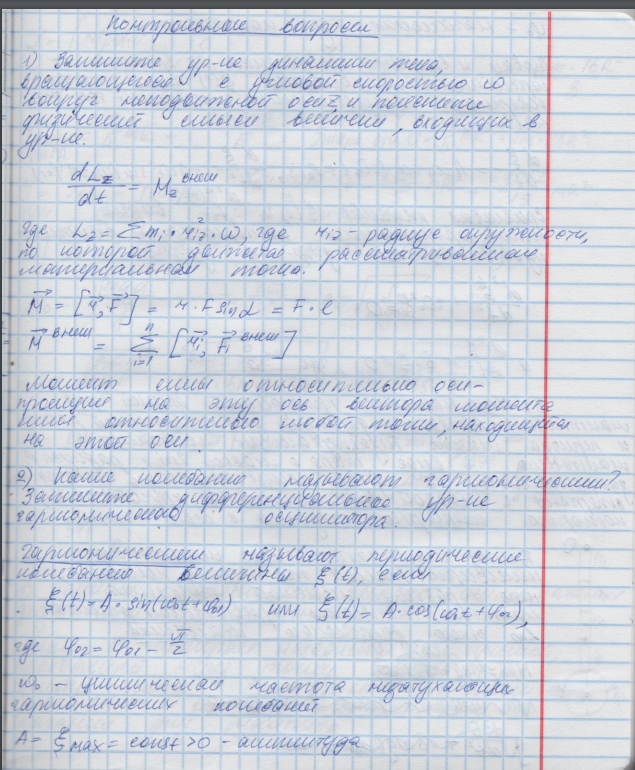 Контрольные вопросы
1) Запишите ур-ие динамики тела,
вращающегося с угловой скоростью ω
вокруг неподвижной оси z, и поясните
физический смысл величин, входящих в
ур-ие.
dLz/dt = Mz^внеш
Где Lz = Σmi·riz²·ω, где riz - радиус окружности,
по которой движется рассматриваемая
материальная точка.
M⃗ = [r⃗, F⃗] = r·F sinα = F·l
M⃗^внеш = Σ_{i=1}^{n} [r⃗i, F⃗i^внеш]
Момент силы относительно оси-
проекция на эту ось вектора момента
силы относительно любой точки, находящейся
на этой оси.
2) Какие колебания называют гармоническими?
Запишите дифференциальное ур-ие
гармонического осциллятора.
Гармоническими называют периодические
колебания величины ξ(t), если
ξ(t) = A·sin(ω₀t+φ₀₁) или ξ(t) = A·cos(ω₀t+φ₀₂),
где φ₀₂ = φ₀₁ - π/2
ω₀ - циклическая частота незатухающих
гармонических колебаний
A = ξmax = const > 0 - амплитуда